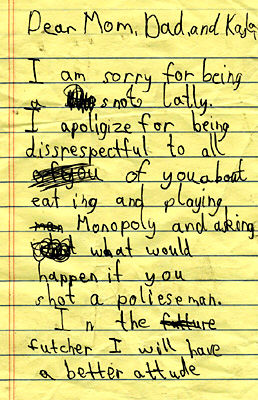 Dear Mom, Dad, and Kayla,
I am sorry for being
a snot latly.
I apoligize for being
dissrespectful to all
of you about
eat ing and playing
Monopoly and aking
what would
happen if you
shot a polieseman.
I n the future
futcher I will have
a better attude